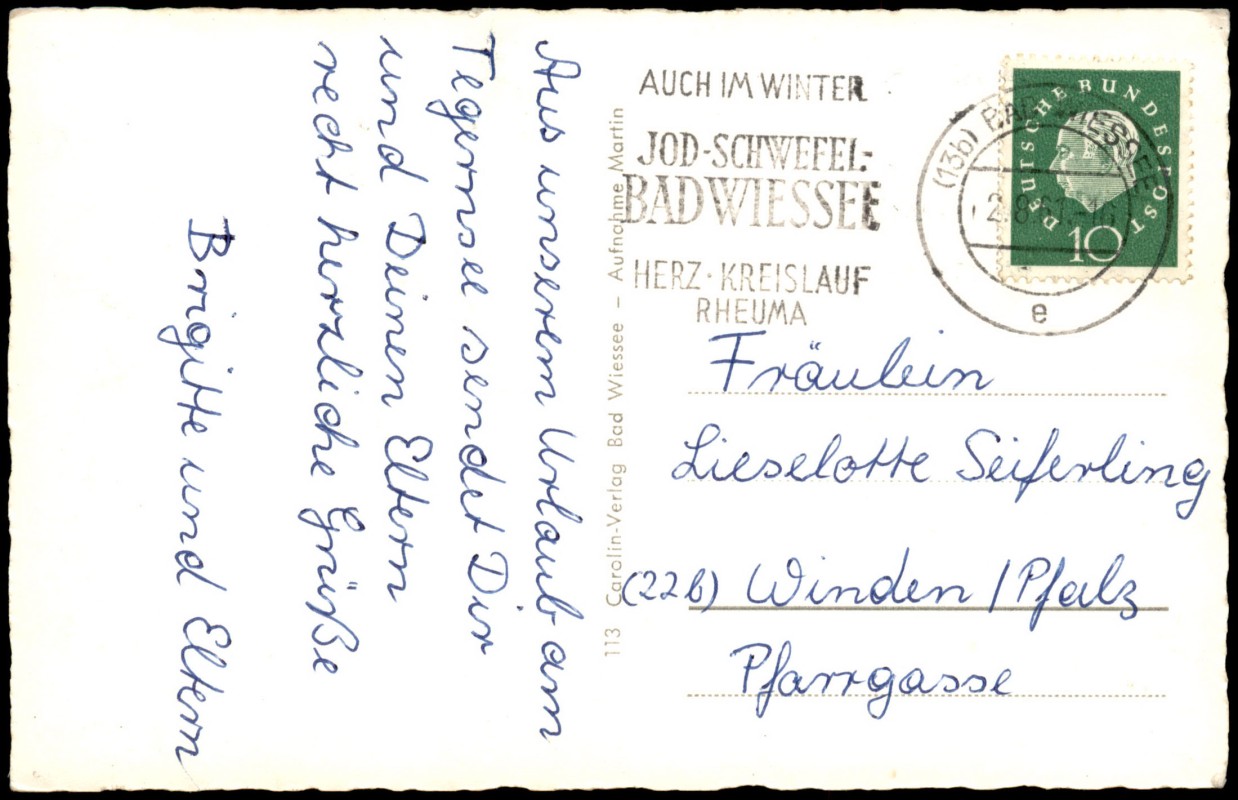 Aus unserem Urlaub am
Tegernsee sendet Dir
und Deinen Eltern
recht herzliche Grüße
Brigitte und Eltern
113 Carolin-Verlag Bad Wiessee – Aufnahme Martin
AUCH IM WINTER
JOD-SCHWEFEL-
BAD WIESSEE
HERZ · KREISLAUF
RHEUMA
(13b) BAD WIESSEE
e
DEUTSCHE BUNDESPOST
10
Fräulein
Lieselotte Seiferling
(22b) Winden / Pfalz
Pfarrgasse